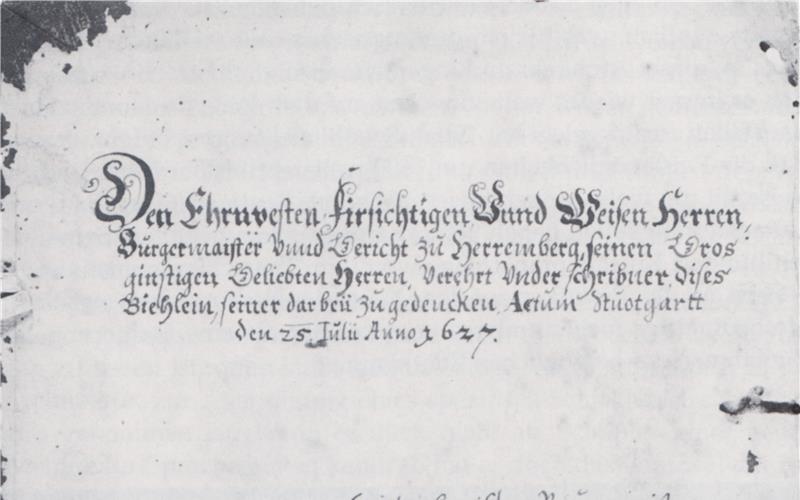 Den Ehrnvesten, Firsichtigen Vund Weisen Herren,
Burgermaister Vnnd Gericht zu Herremberg, seinen Gros
ginstigen Geliebten Herren, Verehrt Vnderschribner, dises
Biehlein, seiner darbeü zu gedencken, Actum Stuotgartt
den 25. Julii Anno 1627.